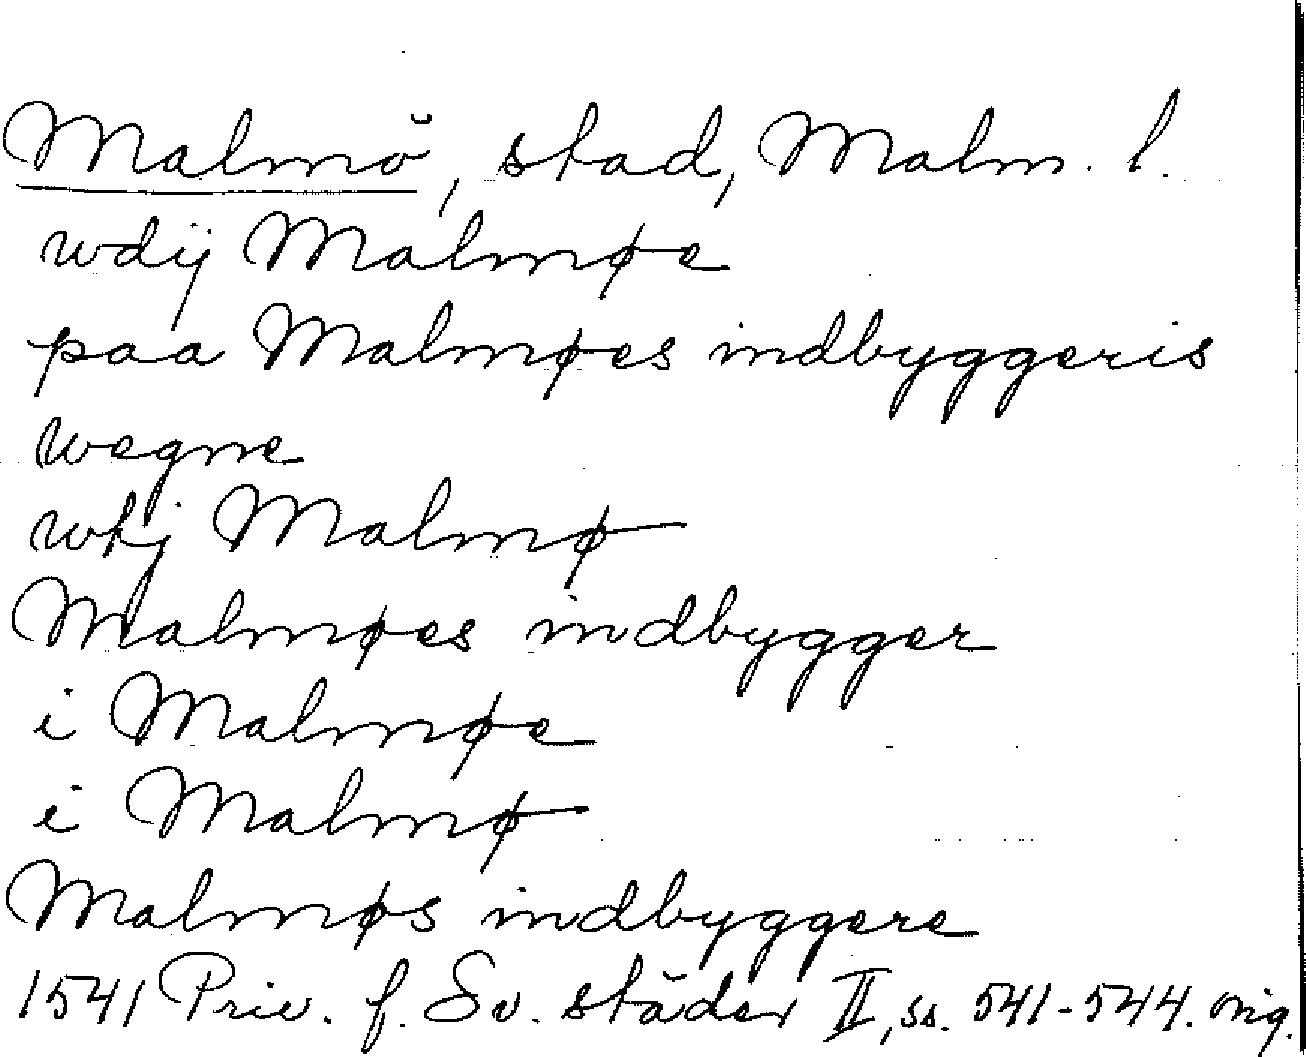 Malmö, stad, Malm. l.
wdij Malmøe
paa Malmøes indbyggeris
wegne
wtj Malmø
Malmøes indbygger
i Malmøe
i Malmø
Malmøs indbyggere
1541 Priv. f. Sv. städer II, ss. 541-544. orig.